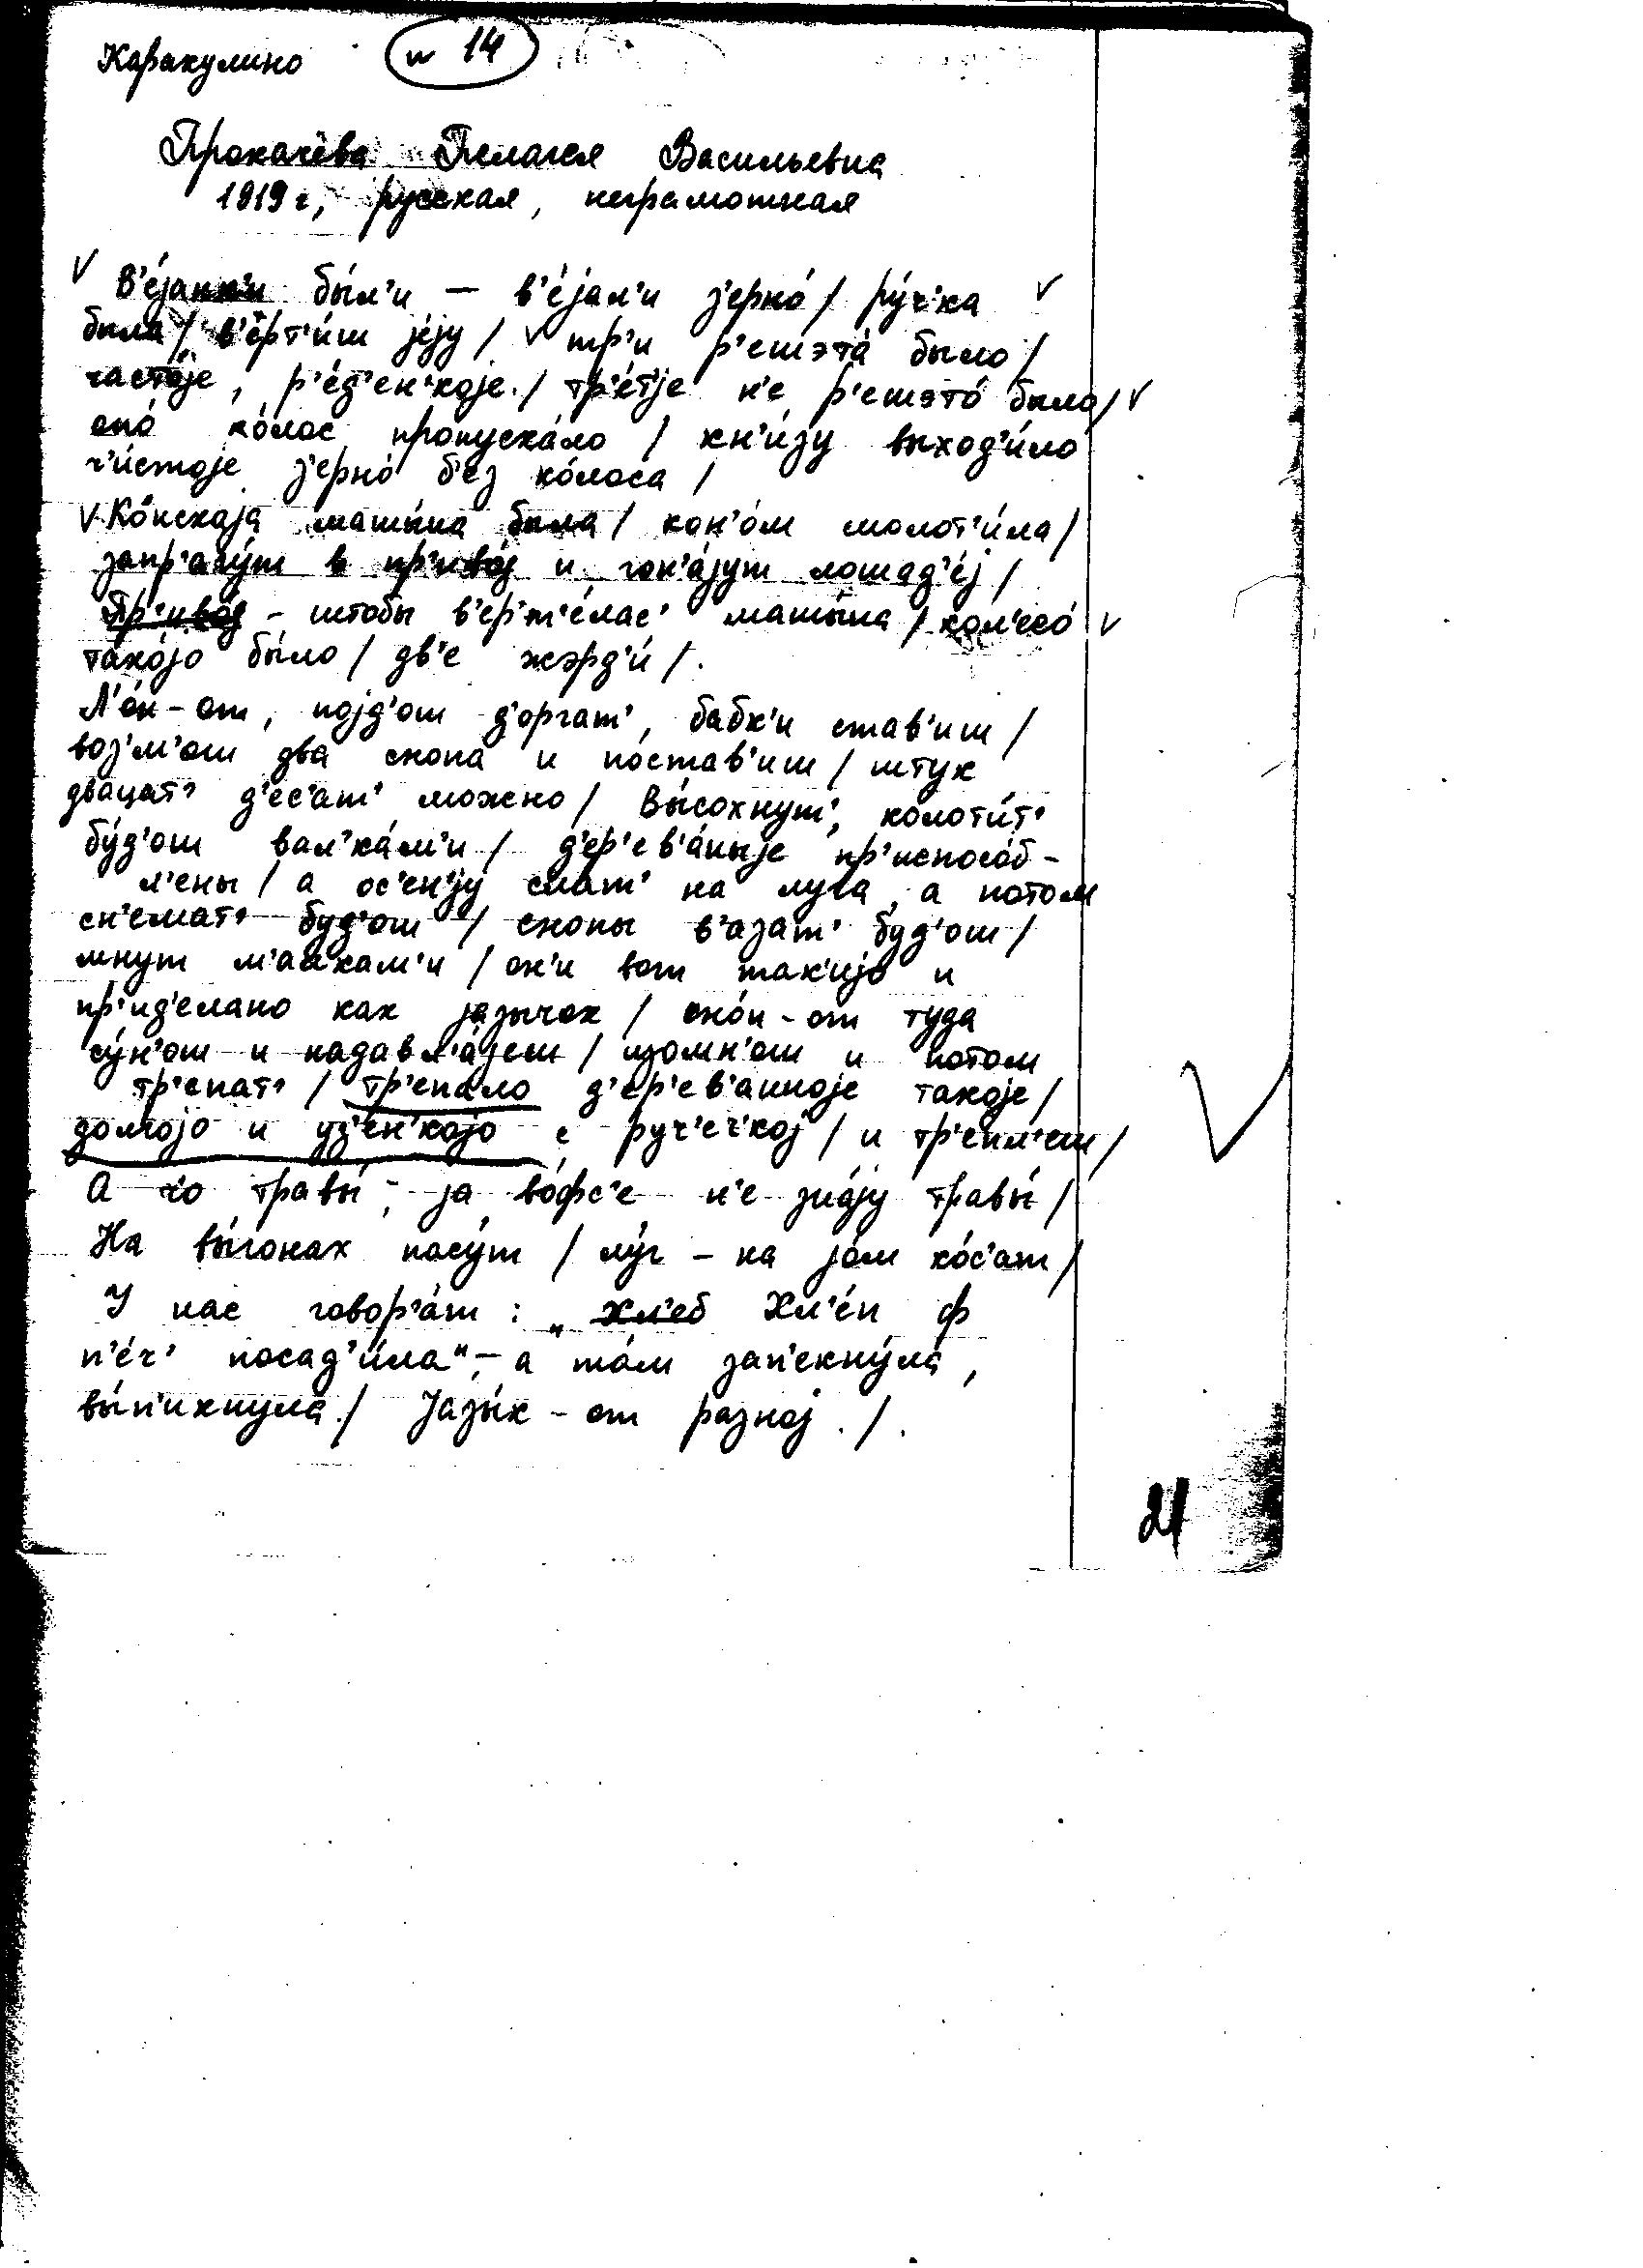 Каракулино № 14
Прокачёва Пелагея Васильевна
1919 г, русская, неграмотная
В'е́јанк'и бы́л'и — в'е́јал'и з'ерно́ / ру́ч'ка
была / в'ерт'и́ш је́ју / тр'и р'ешэта́ было /
частоје, р'е́д'ен'које / тр'е́т'је н'е р'ешэто́ было /
оно́ ко́лос пропуска́ло / кн'и́зу выход'и́ло
ч'и́стоје з'ерно́ б'ез ко́лоса /
Ко́нскаја машы́на была / кон'о́м молот'и́ла /
запр'агу́т в пр'иво́д и гон'а́јут лошад'е́ј /
Пр'иво́д - штобы в'ерт'е́лас' машы́на / кол'есо́
тако́јо бы́ло / дв'е жэрд'и́ /.
Л'о́н-от, појд'ош д'оргат', бабк'и став'иш /
воз'м'ош два снопа и поста́в'иш / штук
двацат' д'ес'ат' можно / Вы́сохнут', колоти́т'
бу́д'ош вал'ка́м'и / д'ер'ев'а́ныје пр'испосо́б-
л'ены / а ос'ен'ју слат' на луга, а потом
сн'емат' буд'ош / снопы в'азат' буд'ош /
мнут м'аlкам'и / он'и вот так'ијо и
пр'ид'елано как јазычок / сно́п-от туда
су́н'ош и надавл'а́јеш / изомн'ош и потом
тр'епат' / тр'епа́ло д'ер'ев'анноје такоје /
долгојо и уз'ен'којо с руч'еч'кој / и тр'епл'еш /
А ч'о травы́, - ја во́фс'е н'е зна́ју травы́ /
На вы́гонах пасу́т / лу́г - на јо́м ко́с'ат /
У нас говор'а́т : „ хл'еб Хл'е́п ф
п'е́ч' посад'и́ла" - а та́м зап'екну́ла,
вы́п'ихнула / Јазы́к - от разној. /.
21